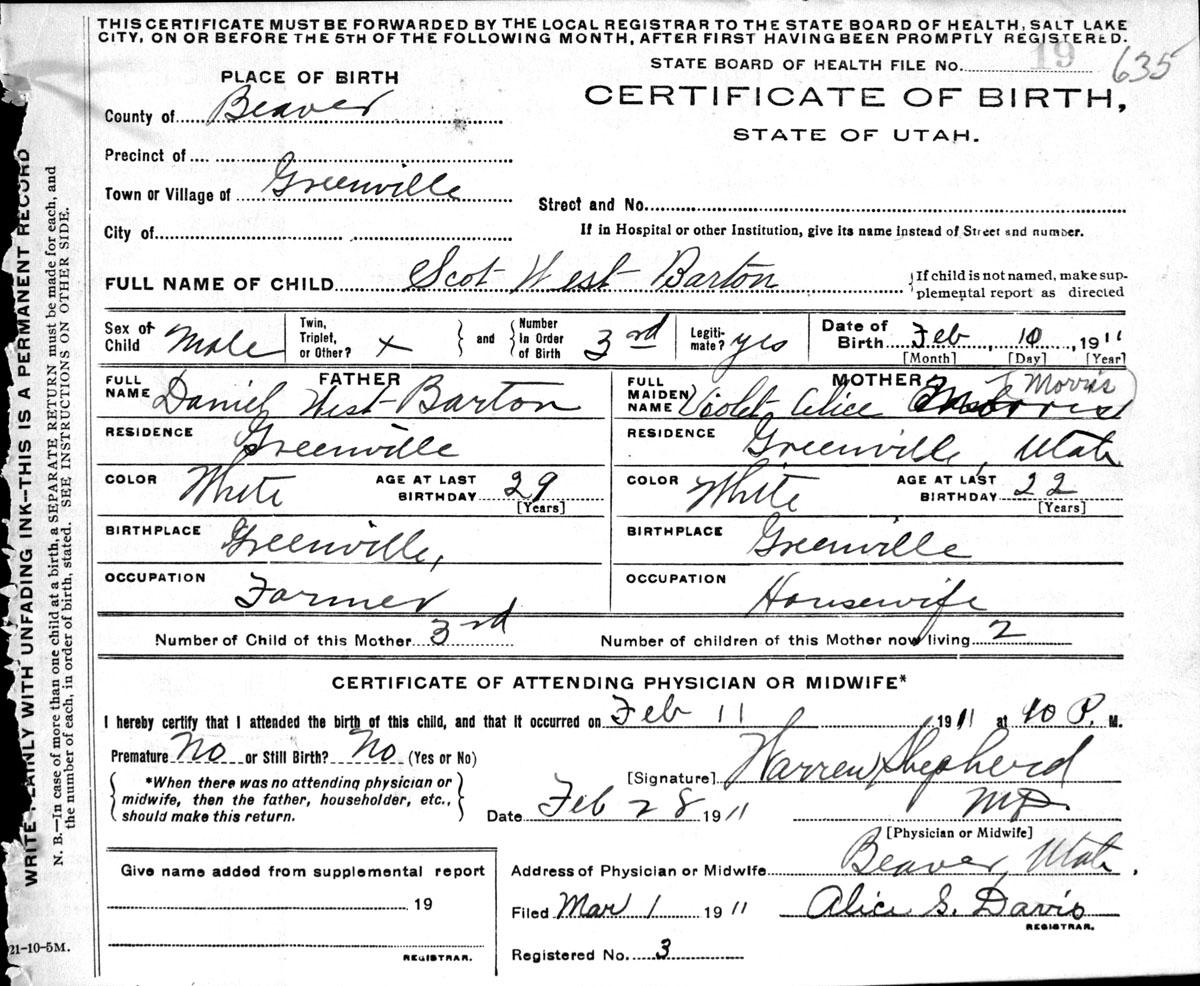 THIS CERTIFICATE MUST BE FORWARDED BY THE LOCAL REGISTRAR TO THE STATE BOARD OF HEALTH, SALT LAKE
CITY, ON OR BEFORE THE 5TH OF THE FOLLOWING MONTH, AFTER FIRST HAVING BEEN PROMPTLY REGISTERED.
STATE BOARD OF HEALTH FILE NO. 19 635
PLACE OF BIRTH
CERTIFICATE OF BIRTH,
STATE OF UTAH.
County of Beaver
Precinct of
Town or Village of Greenville
Street and No.
City of
If in Hospital or other Institution, give its name instead of Street and number.
FULL NAME OF CHILD Scot West Barton
{If child is not named, make sup-
plemental report as directed
Sex of Child Male
Twin, Triplet, or Other? x } and { Number In Order of Birth 3rd
Legiti-mate? yes
Date of Birth Feb, 10, 1911
[Month] [Day] [Year]
FATHER
FULL NAME Daniel West Barton
RESIDENCE Greenville
COLOR White AGE AT LAST BIRTHDAY 29
[Years]
BIRTHPLACE Greenville,
OCCUPATION Farmer
MOTHER
FULL MAIDEN NAME Violet Alice Morris
Morris
RESIDENCE Greenville, Utah
COLOR White AGE AT LAST BIRTHDAY 22
[Years]
BIRTHPLACE Greenville
OCCUPATION Housewife
Number of Child of this Mother 3rd Number of children of this Mother now living 2
CERTIFICATE OF ATTENDING PHYSICIAN OR MIDWIFE*
I hereby certify that I attended the birth of this child, and that it occurred on Feb 11 1911 at 10 P. M.
Premature No or Still Birth? No (Yes or No)
{ *When there was no attending physician or
midwife, then the father, householder, etc.,
should make this return. }
[Signature] Warren Shepherd
MD
Date Feb 28 1911
[Physician or Midwife]
Address of Physician or Midwife Beaver, Utah.
Filed Mar 1 1911 Alice S. Davis
REGISTRAR.
Registered No. 3
Give name added from supplemental report
19
REGISTRAR.
WRITE PLAINLY WITH UNFADING INK--THIS IS A PERMANENT RECORD
N. B.—In case of more than one child at a birth, a SEPARATE RETURN must be made for each, and
the number of each, in order of birth, stated. SEE INSTRUCTIONS ON OTHER SIDE.
21-10-5M.